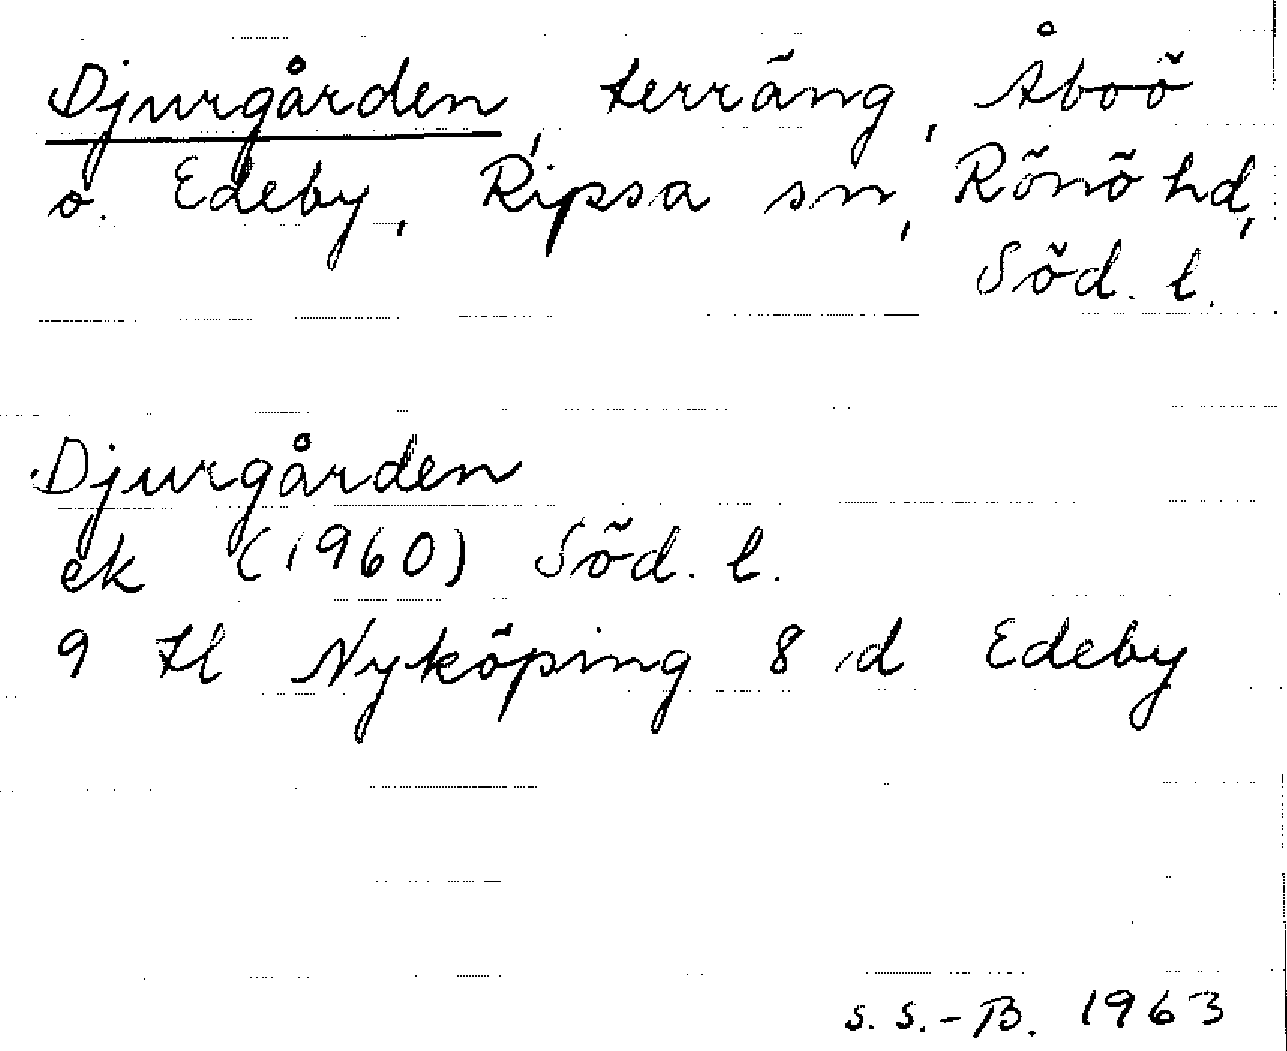 Djurgården, terräng, Åboö
o. Edeby, Ripsa sn, Rönö hd,
Söd. l.
Djurgården
ek (1960) Söd. l.
9 Hl Nyköping 8 d Edeby
S. S.-B. 1963